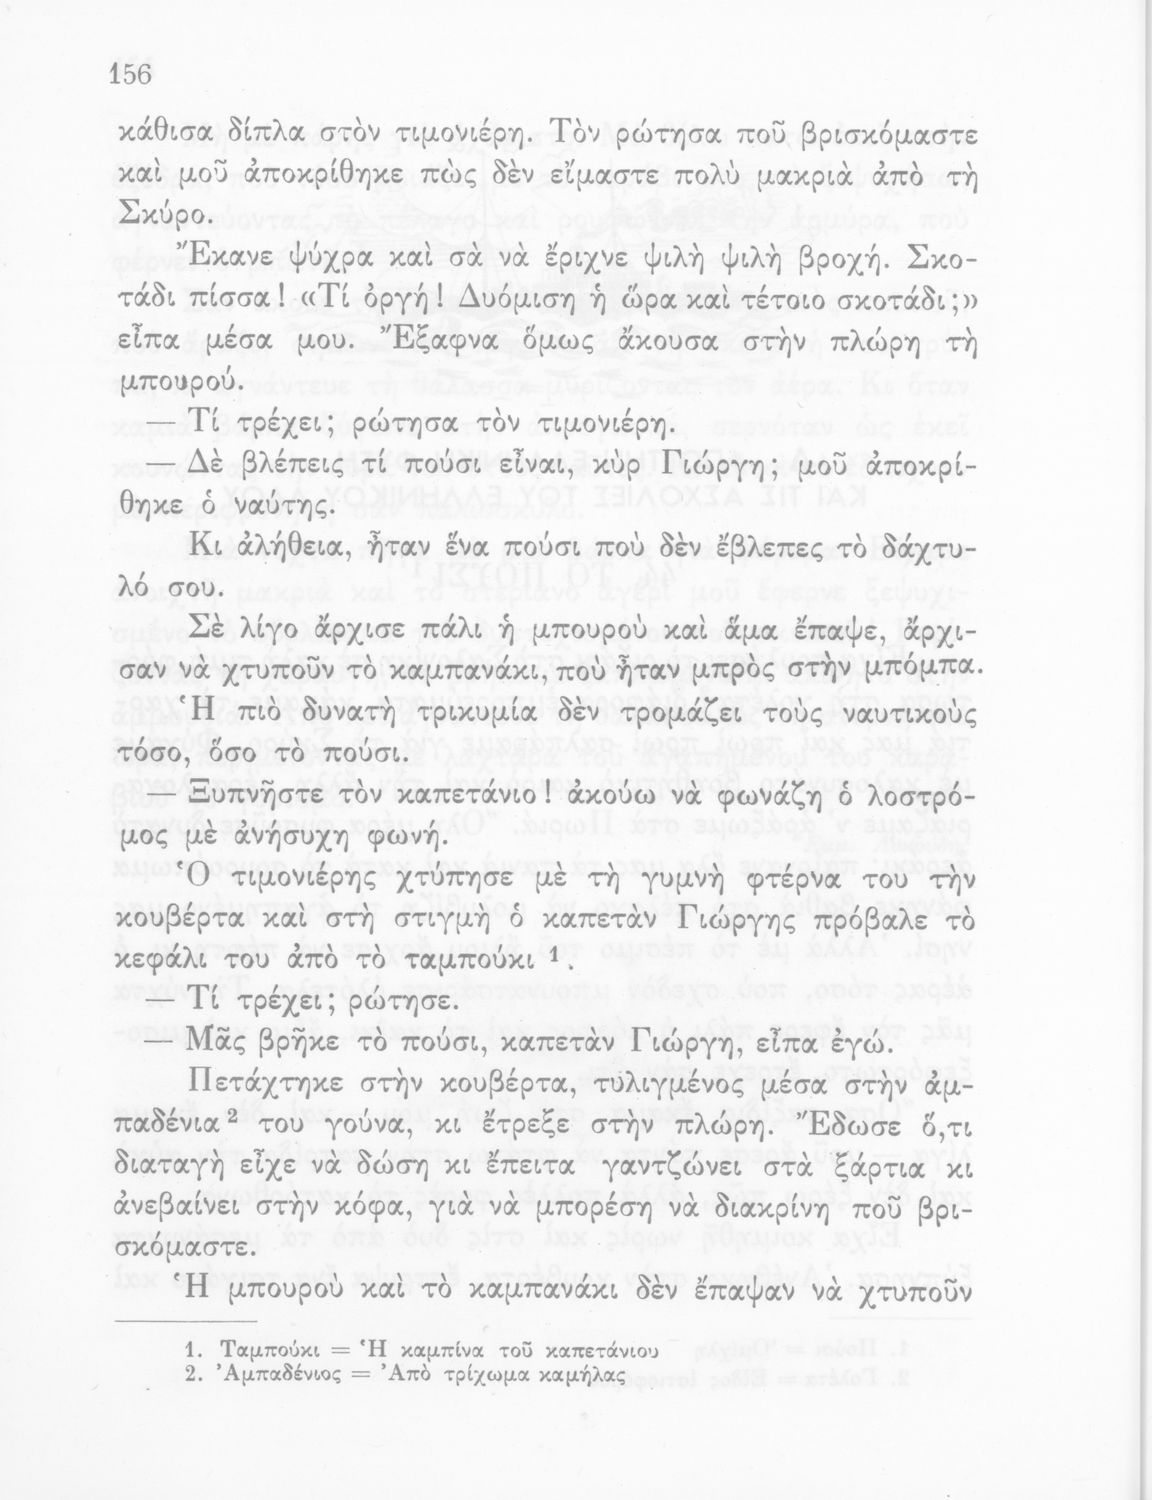 156
κάθισα δίπλα στὸν τιμονιέρη. Τὸν ρώτησα ποῦ βρισκόμαστε
καὶ μοῦ ἀποκρίθηκε πὼς δὲν εἴμαστε πολὺ μακριὰ ἀπὸ τὴ
Σκύρο.
Ἔκανε ψύχρα καὶ σὰ νὰ ἔριχνε ψιλὴ ψιλὴ βροχή. Σκο-
τάδι πίσσα! «Τί ὀργή! Δυόμιση ἡ ὥρα καὶ τέτοιο σκοτάδι;»
εἶπα μέσα μου. Ἔξαφνα ὅμως ἄκουσα στὴν πλώρη τὴ
μπουρού.
— Τί τρέχει; ρώτησα τὸν τιμονιέρη.
— Δὲ βλέπεις τί πούσι εἶναι, κὺρ Γιώργη; μοῦ ἀποκρί-
θηκε ὁ ναύτης.
Κι ἀλήθεια, ἦταν ἕνα πούσι ποὺ δὲν ἔβλεπες τὸ δάχτυ-
λό σου.
Σὲ λίγο ἄρχισε πάλι ἡ μπουροὺ καὶ ἅμα ἔπαψε, ἄρχι-
σαν νὰ χτυποῦν τὸ καμπανάκι, ποὺ ἦταν μπρὸς στὴν μπόμπα.
Ἡ πιὸ δυνατὴ τρικυμία δὲν τρομάζει τοὺς ναυτικοὺς
τόσο, ὅσο τὸ πούσι.
— Ξυπνῆστε τὸν καπετάνιο! ἀκούω νὰ φωνάζη ὁ λοστρό-
μος μὲ ἀνήσυχη φωνή.
Ὁ τιμονιέρης χτύπησε μὲ τὴ γυμνὴ φτέρνα του τὴν
κουβέρτα καὶ στὴ στιγμὴ ὁ καπετὰν Γιώργης πρόβαλε τὸ
κεφάλι του ἀπὸ τὸ ταμπούκι ¹.
— Τί τρέχει; ρώτησε.
— Μᾶς βρῆκε τὸ πούσι, καπετὰν Γιώργη, εἶπα ἐγώ.
Πετάχτηκε στὴν κουβέρτα, τυλιγμένος μέσα στὴν ἀμ-
παδένια ² του γούνα, κι ἔτρεξε στὴν πλώρη. Ἔδωσε ὅ,τι
διαταγὴ εἶχε νὰ δώση κι ἔπειτα γαντζώνει στὰ ξάρτια κι
ἀνεβαίνει στὴν κόφα, γιὰ νὰ μπορέση νὰ διακρίνη ποῦ βρι-
σκόμαστε.
Ἡ μπουροὺ καὶ τὸ καμπανάκι δὲν ἔπαψαν νὰ χτυποῦν
1. Ταμπούκι = Ἡ καμπίνα τοῦ καπετάνιου
2. Ἀμπαδένιος = Ἀπὸ τρίχωμα καμήλας